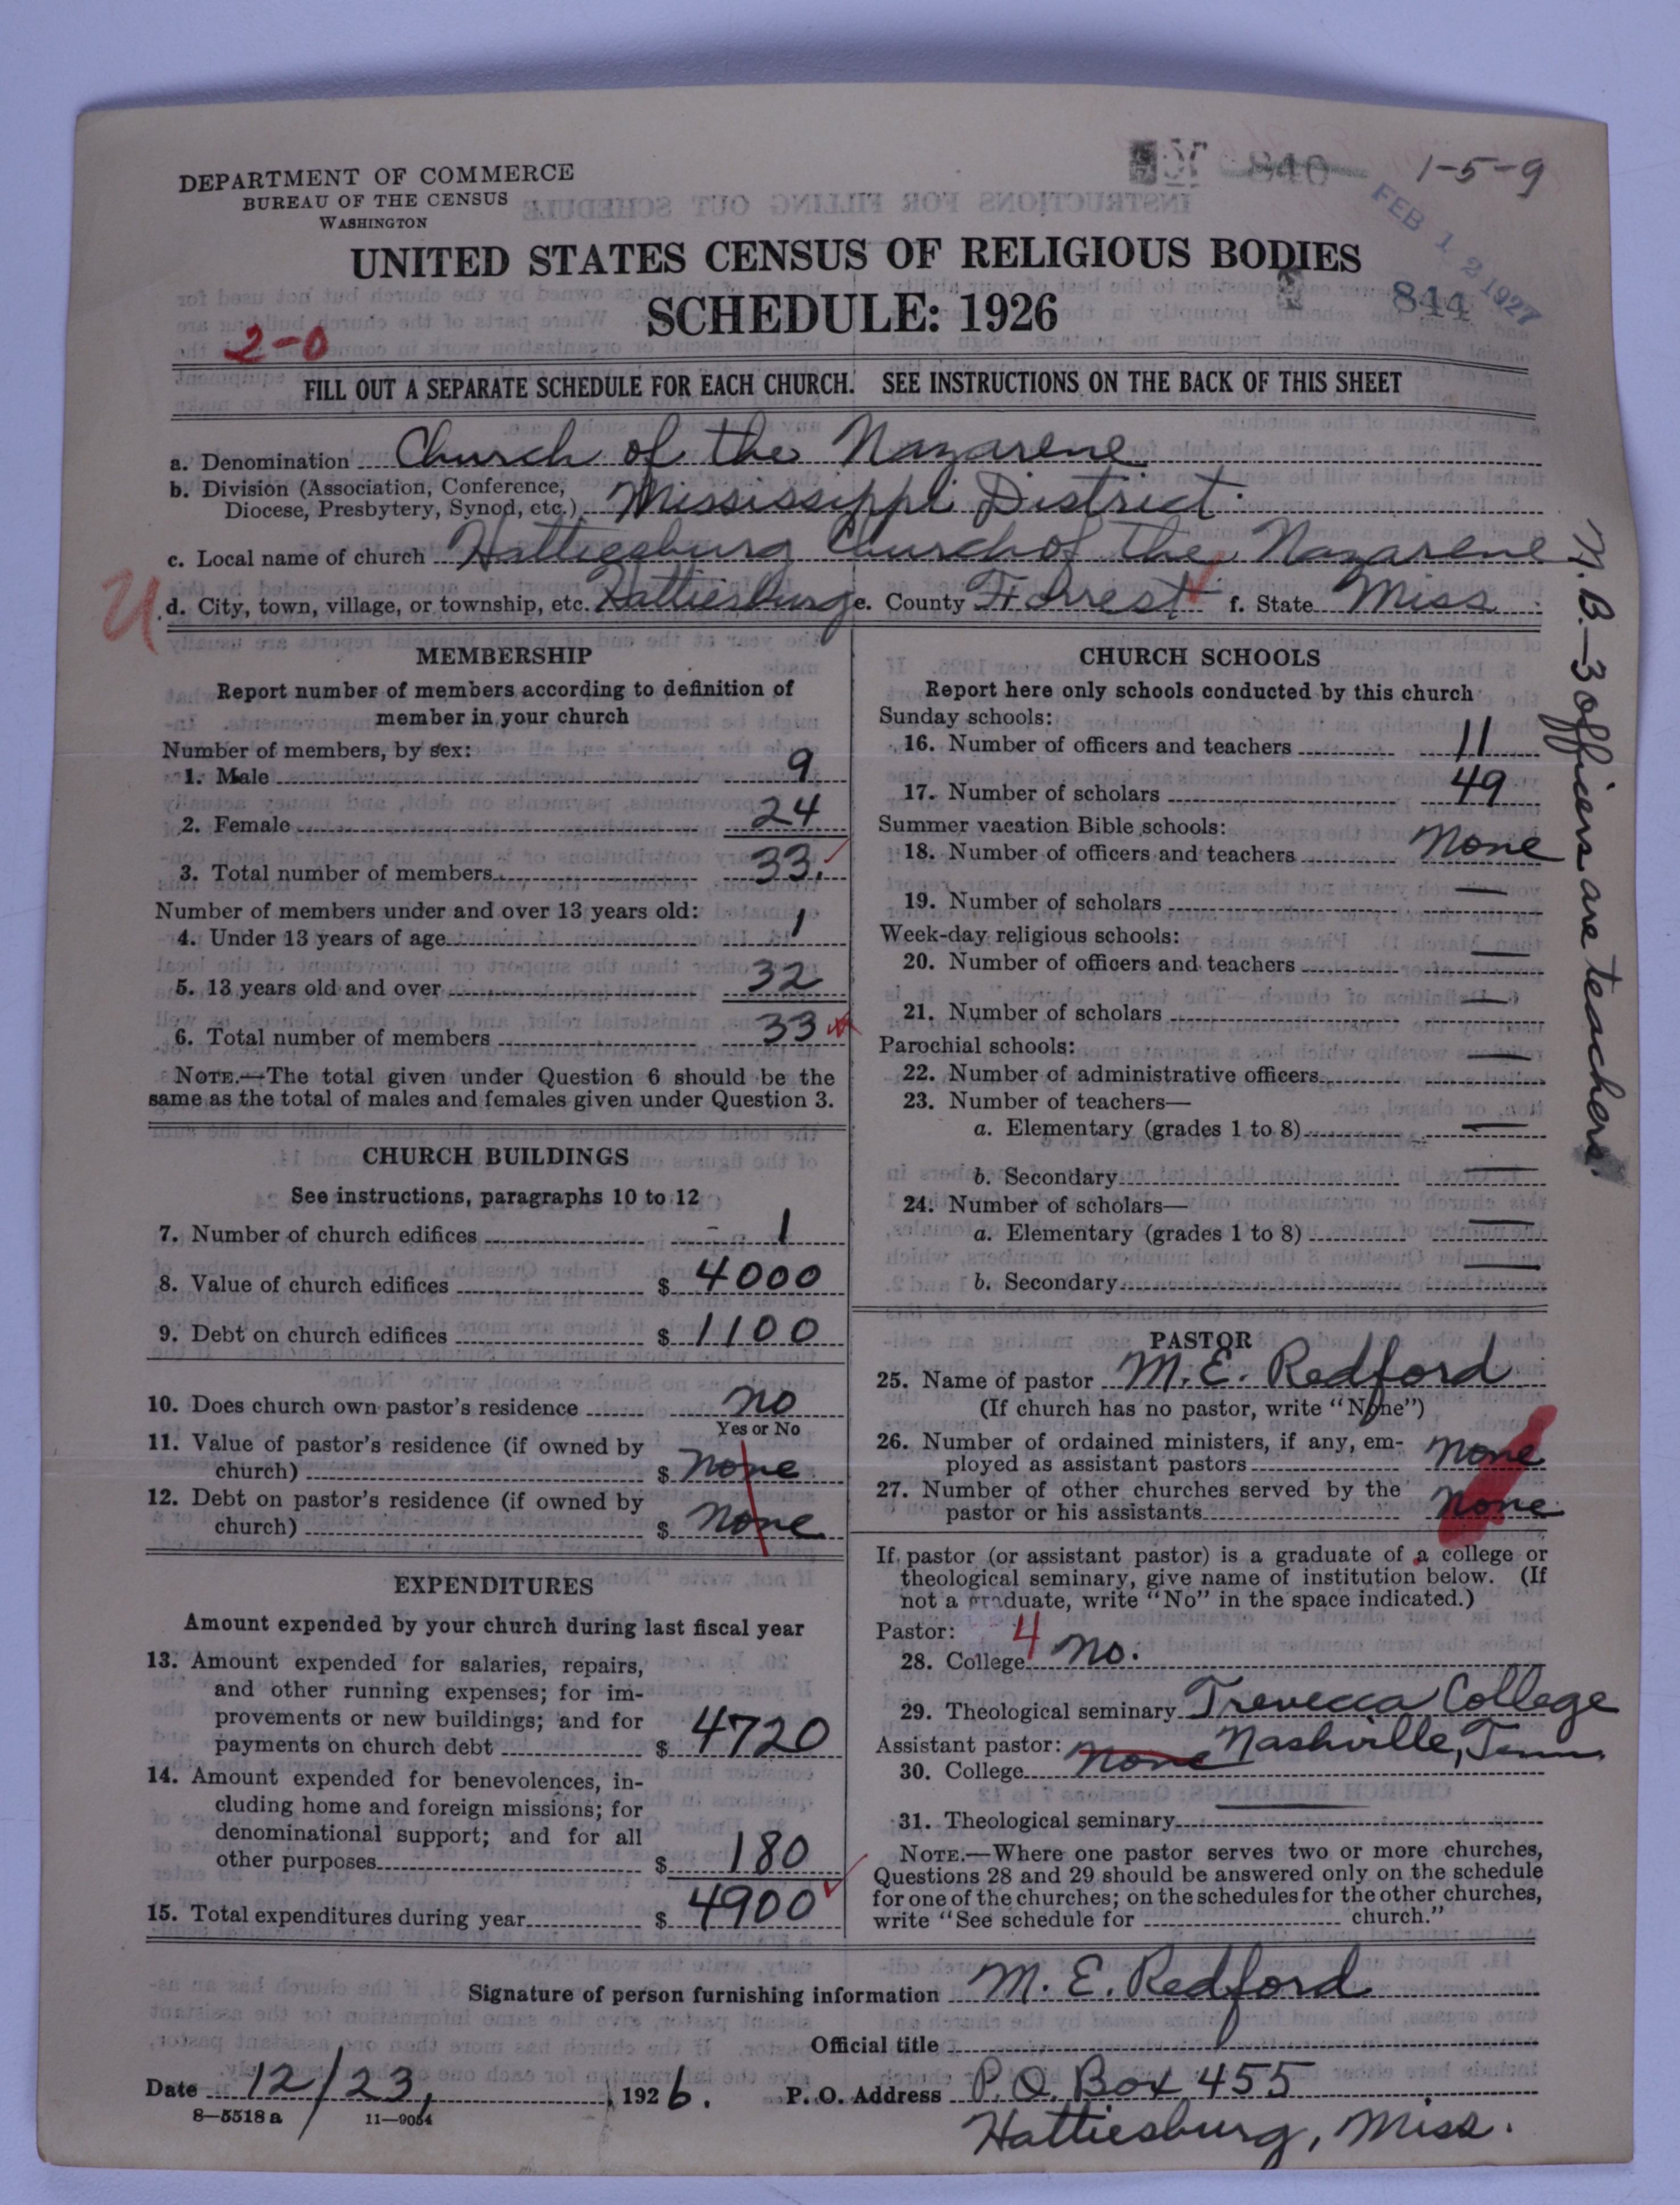 DEPARTMENT OF COMMERCE
BUREAU OF THE CENSUS
WASHINGTON
840
1-5-9
FEB 12 1927
844
UNITED STATES CENSUS OF RELIGIOUS BODIES
SCHEDULE: 1926
2-0
FILL OUT A SEPARATE SCHEDULE FOR EACH CHURCH. SEE INSTRUCTIONS ON THE BACK OF THIS SHEET
a. Denomination Church of the Nazarene
b. Division (Association, Conference,
Diocese, Presbytery, Synod, etc.) Mississippi District.
c. Local name of church Hattiesburg Church of the Nazarene
U
d. City, town, village, or township, etc. Hattiesburg e. County Forrest f. State Miss
MEMBERSHIP
Report number of members according to definition of
member in your church
Number of members, by sex:
1. Male 9
2. Female 24
3. Total number of members 33.
Number of members under and over 13 years old:
4. Under 13 years of age 1
5. 13 years old and over 32
6. Total number of members 33
NOTE.—The total given under Question 6 should be the
same as the total of males and females given under Question 3.
CHURCH BUILDINGS
See instructions, paragraphs 10 to 12
7. Number of church edifices 1
8. Value of church edifices $ 4000
9. Debt on church edifices $ 1100
10. Does church own pastor's residence no
Yes or No
11. Value of pastor's residence (if owned by
church) $ none
12. Debt on pastor's residence (if owned by
church) $ none
EXPENDITURES
Amount expended by your church during last fiscal year
13. Amount expended for salaries, repairs,
and other running expenses; for im-
provements or new buildings; and for
payments on church debt $ 4720
14. Amount expended for benevolences, in-
cluding home and foreign missions; for
denominational support; and for all
other purposes $ 180
15. Total expenditures during year $ 4900
CHURCH SCHOOLS
Report here only schools conducted by this church
Sunday schools:
16. Number of officers and teachers 11
17. Number of scholars 49
Summer vacation Bible schools:
18. Number of officers and teachers none
19. Number of scholars —
Week-day religious schools:
20. Number of officers and teachers —
21. Number of scholars —
Parochial schools:
22. Number of administrative officers —
23. Number of teachers—
a. Elementary (grades 1 to 8) —
b. Secondary —
24. Number of scholars—
a. Elementary (grades 1 to 8) —
b. Secondary —
N.B.—3 officers are teachers.
PASTOR
25. Name of pastor M. E. Redford
(If church has no pastor, write "None")
26. Number of ordained ministers, if any, em-
ployed as assistant pastors none
27. Number of other churches served by the
pastor or his assistants none
If pastor (or assistant pastor) is a graduate of a college or
theological seminary, give name of institution below. (If
not a graduate, write "No" in the space indicated.)
Pastor: 4
28. College no.
29. Theological seminary Trevecca College
Assistant pastor: Nashville, Tenn
30. College none
31. Theological seminary —
NOTE.—Where one pastor serves two or more churches,
Questions 28 and 29 should be answered only on the schedule
for one of the churches; on the schedules for the other churches,
write "See schedule for church."
Signature of person furnishing information M. E. Redford
Official title
Date 12/23, 1926. P. O. Address P.O. Box 455
8—5518 a 11—9054
Hattiesburg, Miss.